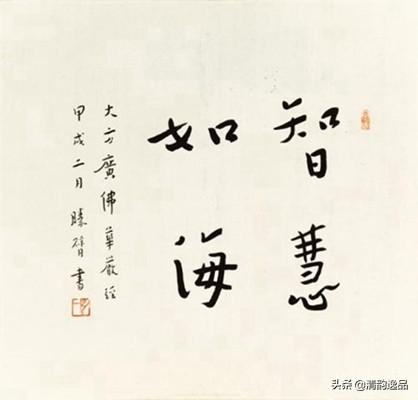 智慧
如海
大方廣佛華嚴經
甲戌二月 書
头条 @清韵逸品